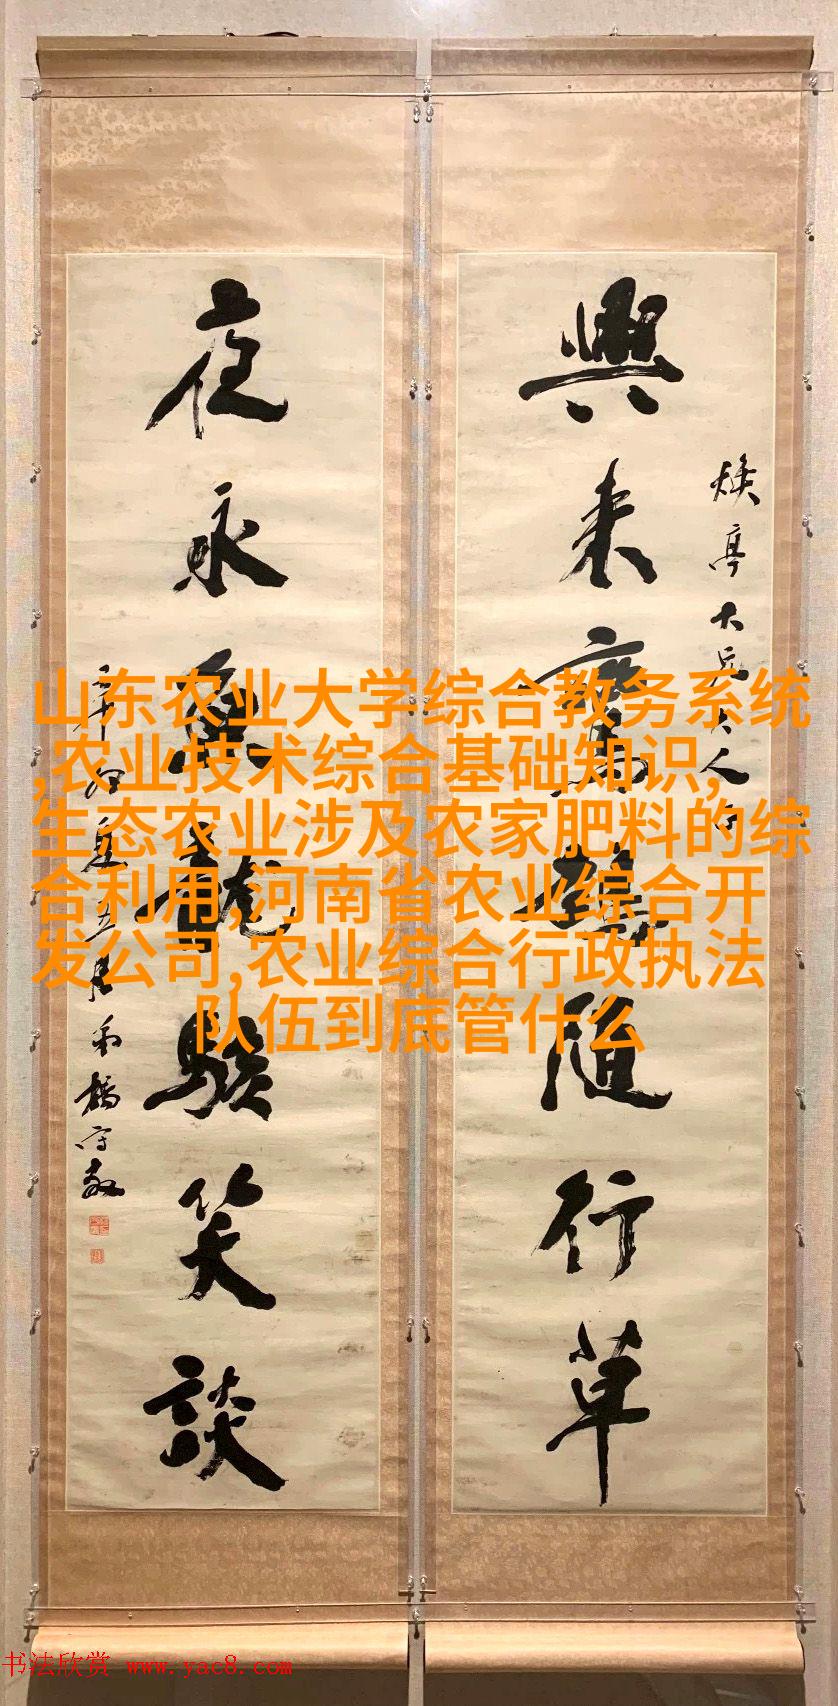 興来隨行草
煥亭大兄大人
夜永魚龍駭笑談
辛卯夏五月弟楊守敬
山东农业大学综合教务系统
,农业技术综合基础知识,
生态农业涉及农家肥料的综
合利用,河南省农业综合开
发公司,农业综合行政执法
队伍到底管什么
书法欣赏 www.yac8.com